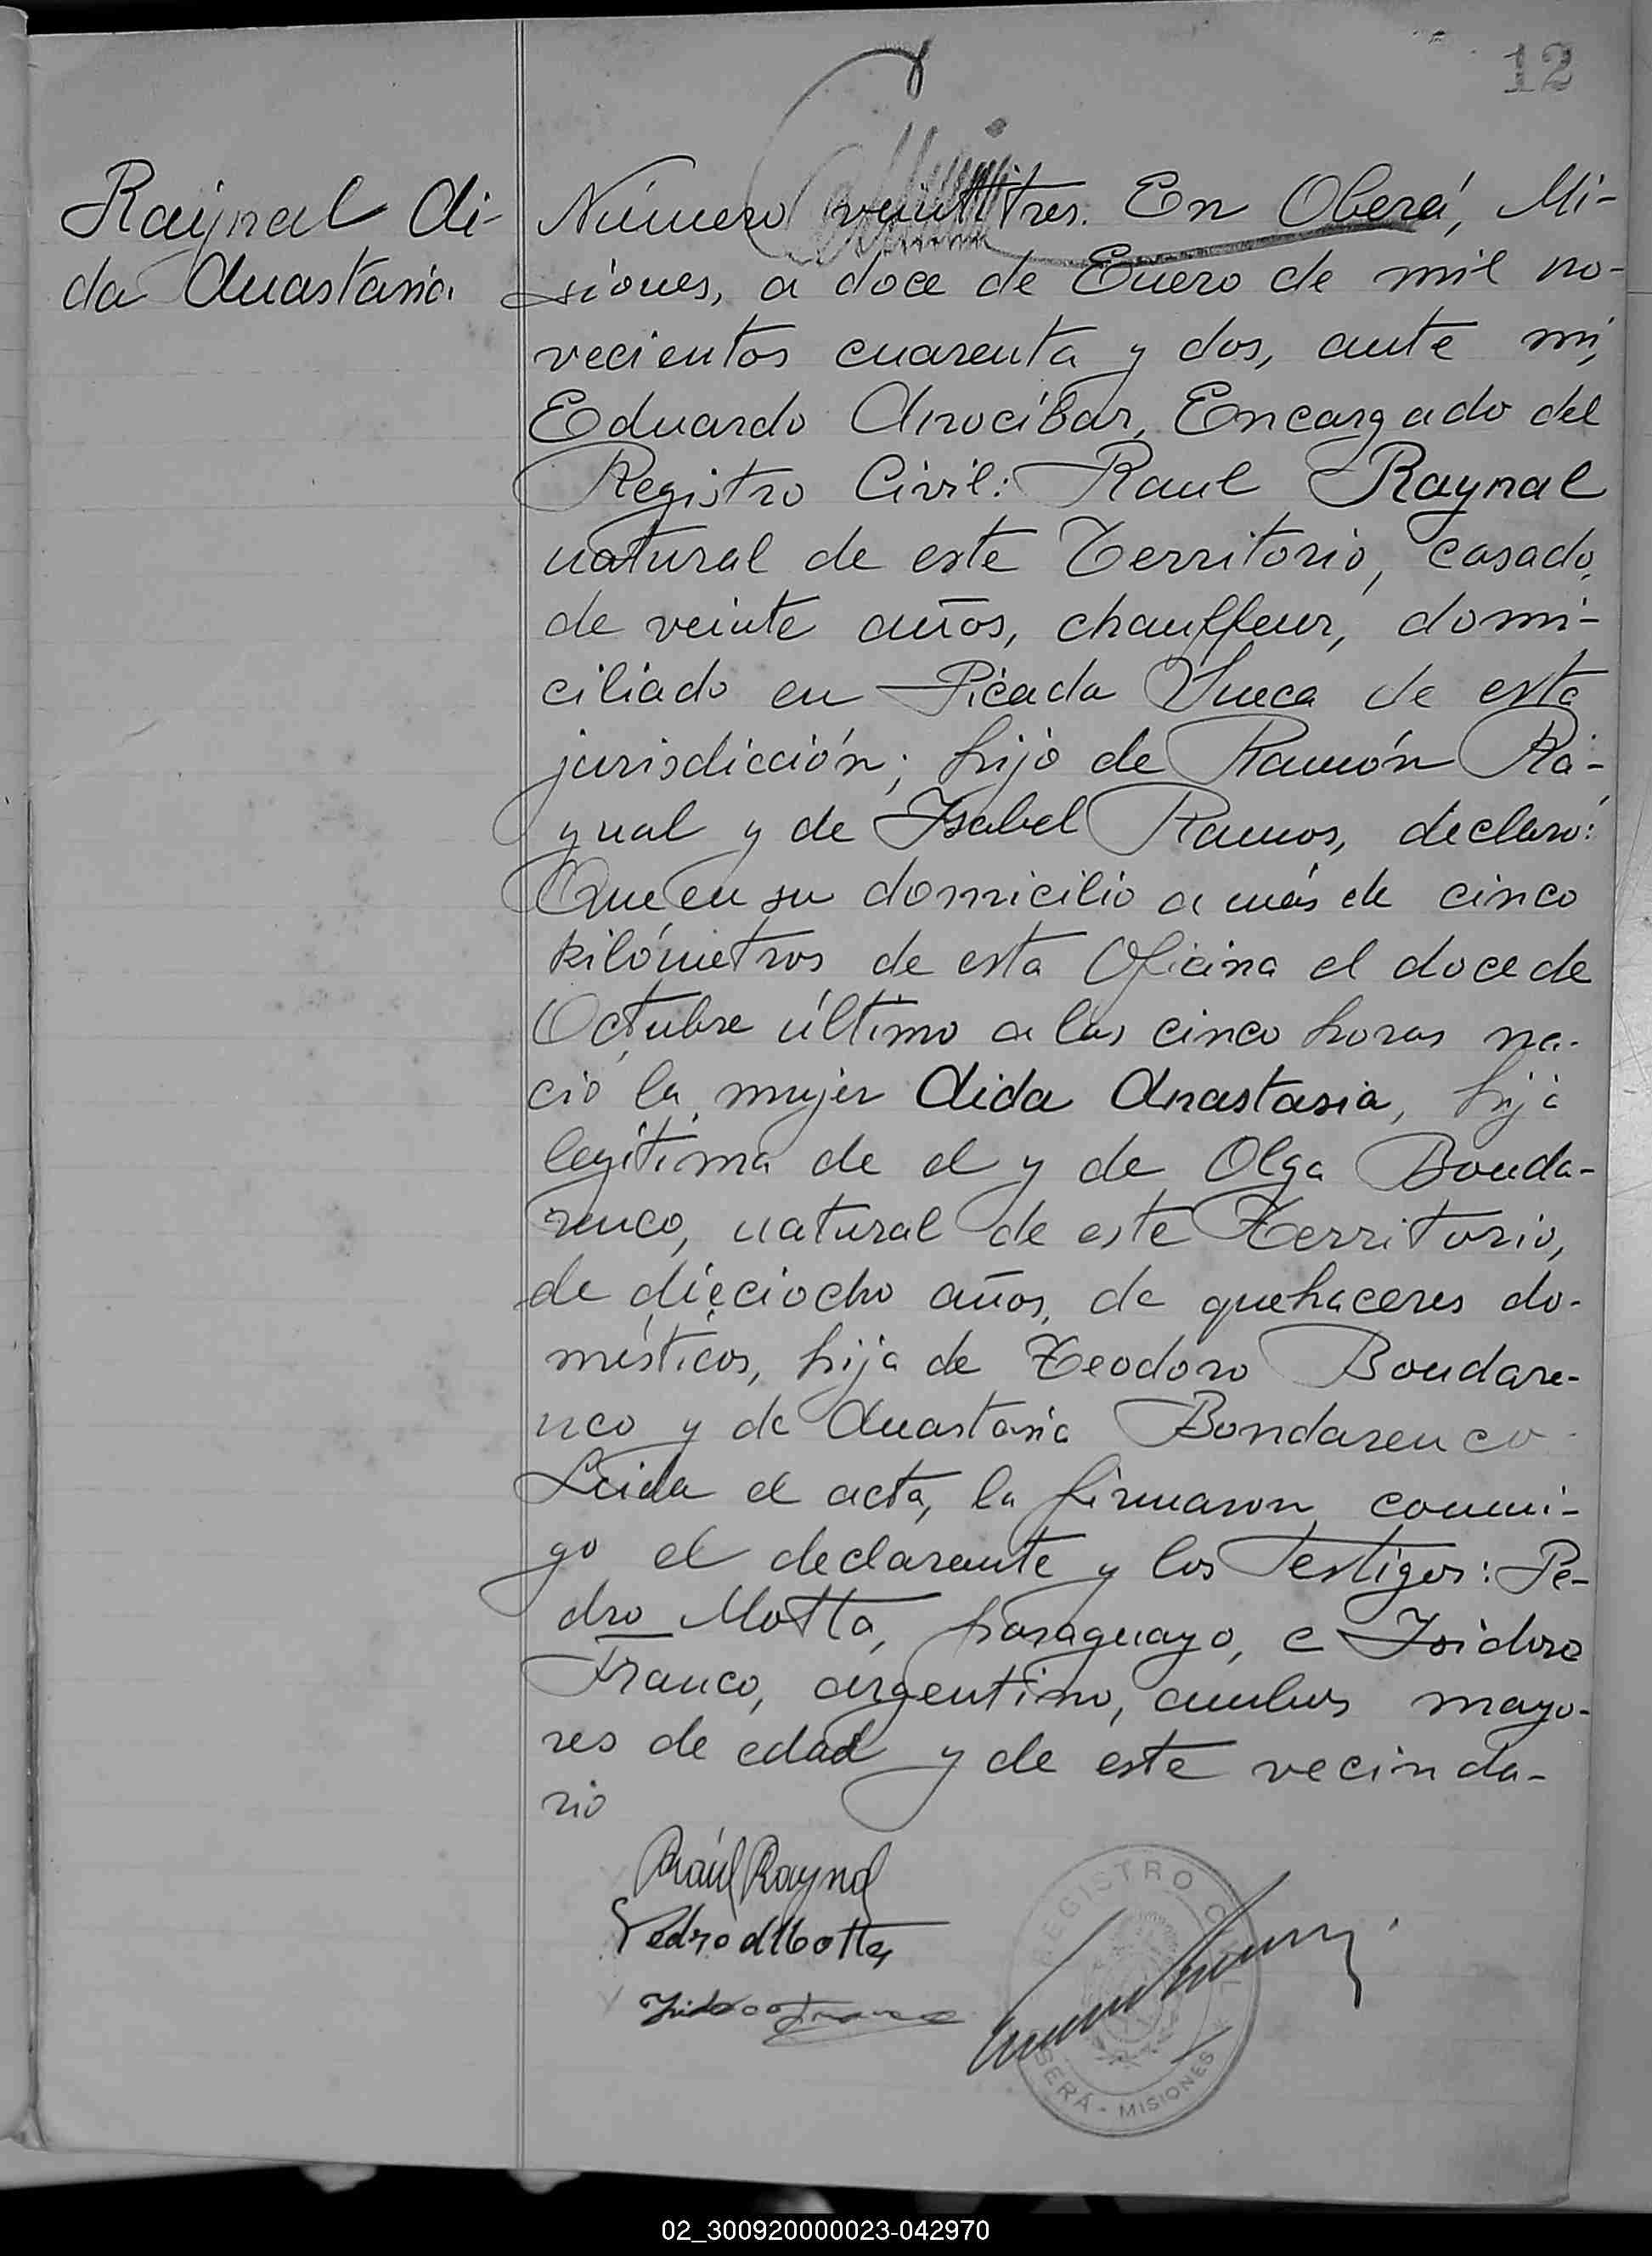 12
Raynal Ai-
da Anastasia.
Número veintitres. En Oberá, Mi-
siones, a doce de Enero de mil no-
vecientos cuarenta y dos, ante mi,
Eduardo Arocibar, Encargado del
Registro Civil: Raul Raynal
natural de este Territorio, casado,
de veinte años, chauffeur, domi-
ciliado en Picada Sueca de esta
jurisdicción; hijo de Ramón Ra-
ynal y de Isabel Ramos, declaró:
Que en su domicilio a más de cinco
kilómetros de esta Oficina el doce de
Octubre último a las cinco horas na-
ció la mujer Aida Anastasia, hija
legítima de el y de Olga Bonda-
renco, natural de este Territorio,
de dieciocho años, de quehaceres do-
mésticos, hija de Teodoro Bondare-
nco y de Anastasia Bondarenco.
Leida el acta, la firmaron conmi-
go el declarante y los testigos: Pe-
dro Motta, paraguayo, e Isidoro
Franco, argentino, ambos mayo-
res de edad y de este vecinda-
rio
Raúl Raynal
Pedro Motta
Isidoro Franco
REGISTRO CIVIL
MISIONES
02_300920000023-042970